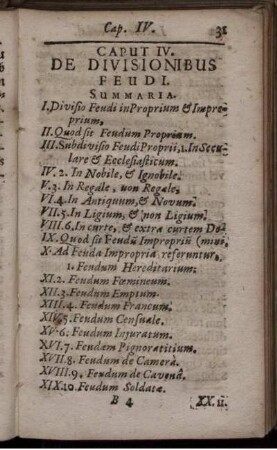 Cap. IV. 31
CAPUT IV.
DE DIVISIONIBUS
FEUDI.
SUMMARIA.
I. Divisio Feudi in Proprium & Impro-
prium,
II. Quod sit Feudum Proprium.
III. Subdivisio Feudi Proprii, 1. In Secu-
lare & Ecclesiasticum.
IV. 2. In Nobile, & Ignobile.
V. 3. In Regale, non Regale,
VI. 4. In Antiquum, & Novum.
VII. 5. In Ligium, & non Ligium.
VIII. 6. In curte, & extra curtem Do-
IX. Quod sit Feudũ Impropriũ (mini,
X. Ad Feuda Impropria referuntur,
1. Feudum Hereditarium.
XI. 2. Feudum Fœmineum.
XII. 3. Feudum Emptum.
XIII. 4. Feudum Francum.
XIV. 5 Feudum Censuale.
XV. 6. Feudum Injuratum.
XVI. 7. Feudum Pignoratitium.
XVII. 8. Feudum de Camerâ.
XVIII. 9. Feudum de Cavenâ.
XIX. 10. Feudum Soldatæ.
B 4 XX. 11.